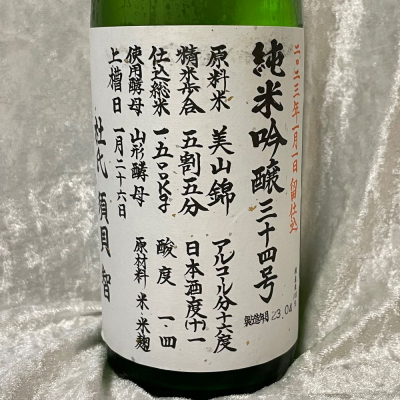 二〇二三年一月一日留仕込
純米吟醸三十四号
製造年月 23.04
原料米 美山錦 アルコール分十六度
精米歩合 五割五分 日本酒度(+)一
仕込総米 一五〇〇kg 酸度 一.四
使用酵母 山形酵母 原材料 米・米麹
上槽日 一月二十六日
杜氏 須貝 智